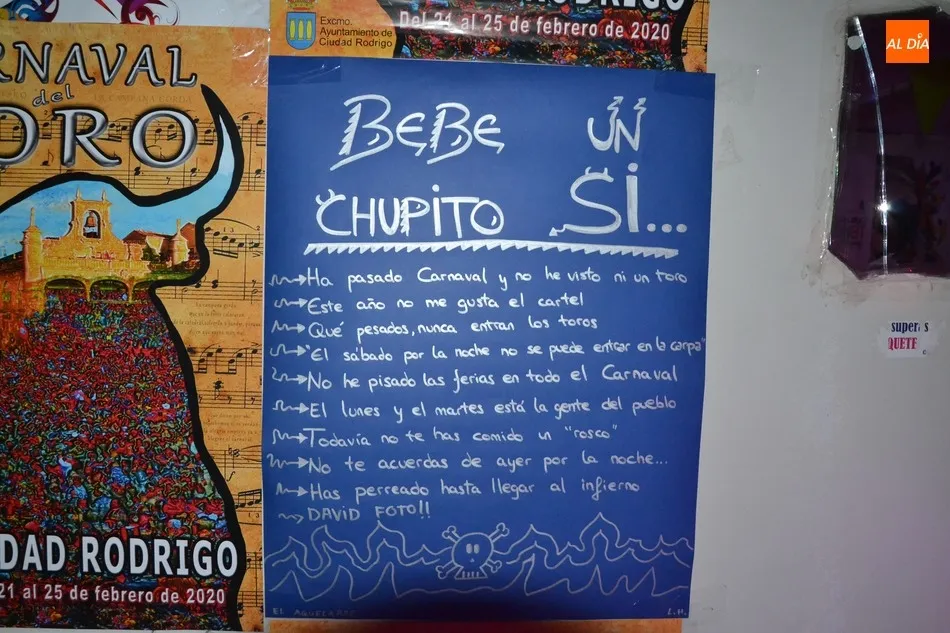 RNAVAL
del
ORO
DAD RODRIGO
21 al 25 de febrero de 2020
Excmo.
Ayuntamiento de
Ciudad Rodrigo
RODRIGO
Del 21 al 25 de febrero de 2020
BEBE UN
CHUPITO SI...
Ha pasado Carnaval y no he visto ni un toro
Este año no me gusta el cartel
Qué pesados, nunca entran los toros
"El sábado por la noche no se puede entrar en la carpa"
No he pisado las ferias en todo el Carnaval
El lunes y el martes está la gente del pueblo
Todavía no te has comido un "rosco"
No te acuerdas de ayer por la noche...
Has perreado hasta llegar al infierno
DAVID FOTO!!
EL
L.M.
AL DÍA
QUETE